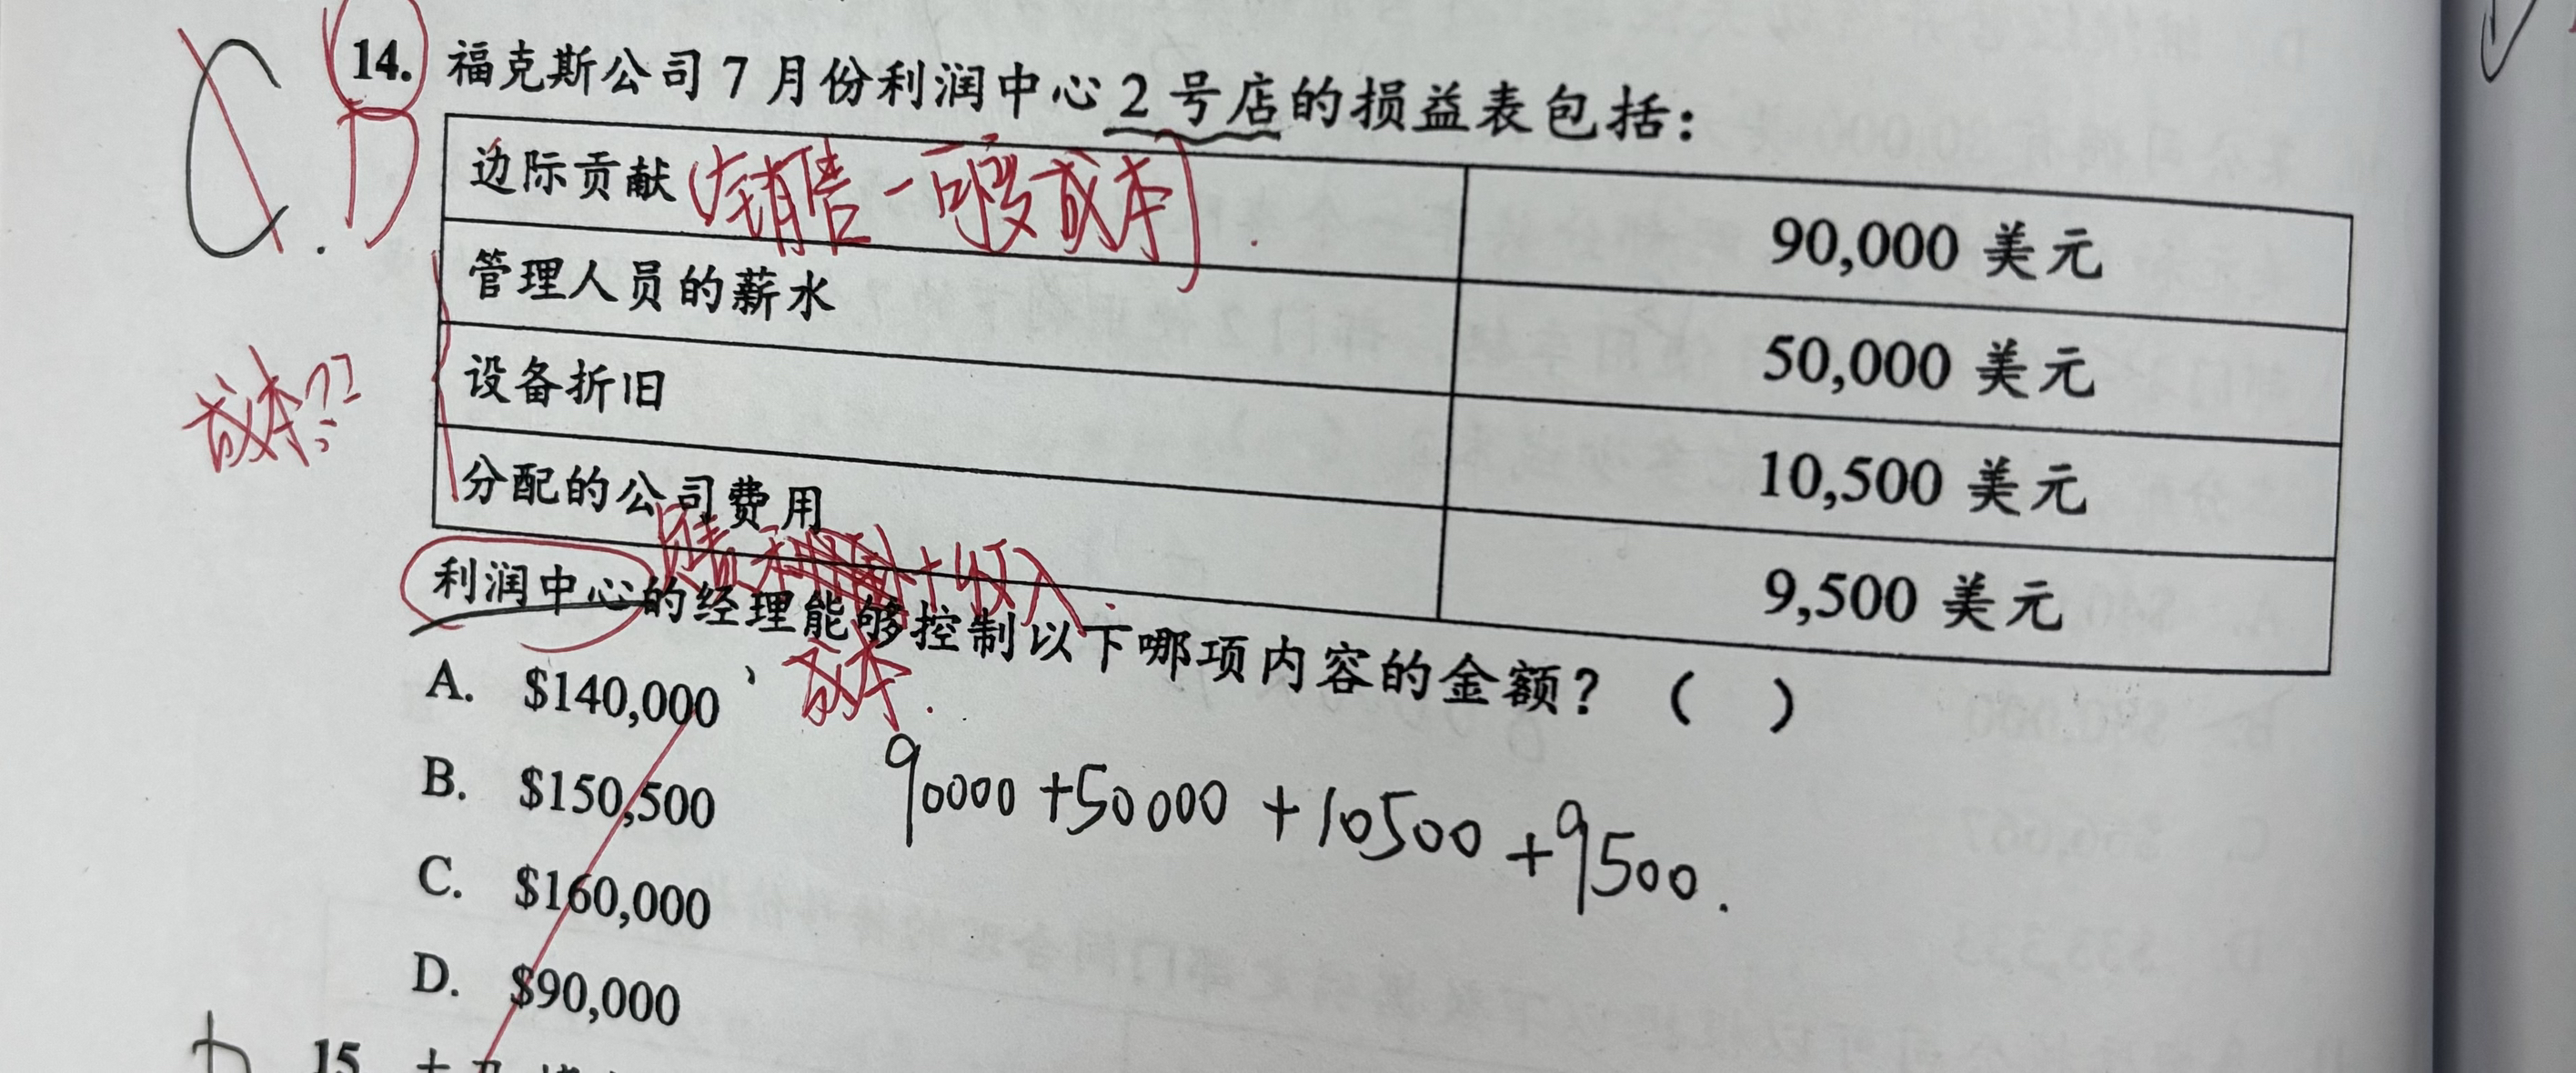 14. 福克斯公司 7 月份利润中心 2 号店的损益表包括：
C. D
边际贡献 (销售 - 可变成本) 90,000 美元
管理人员的薪水 50,000 美元
设备折旧 10,500 美元
分配的公司费用 9,500 美元
成本??
+收入
利润中心的经理能够控制以下哪项内容的金额？（ ）
成本.
A. $140,000
B. $150,500
C. $160,000
D. $90,000
90000 +50000 +10500 +9500.
15